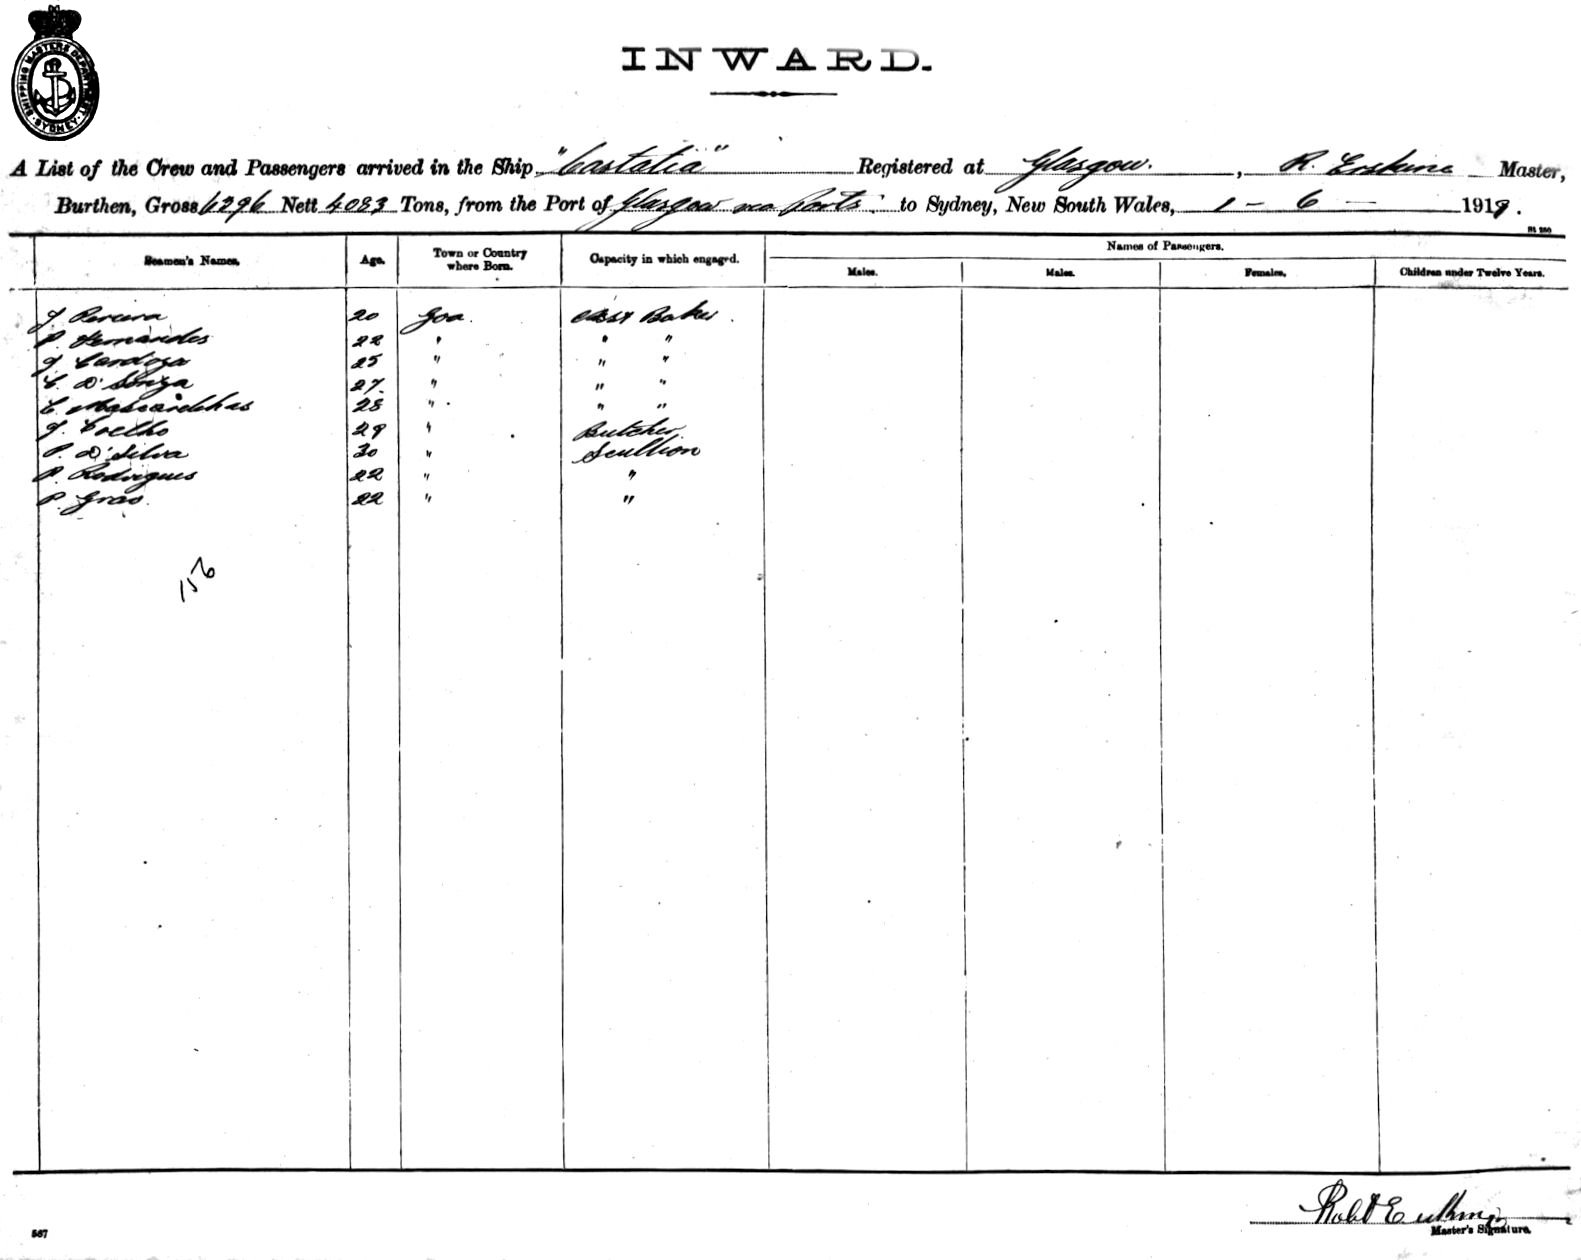 SHIPPING MASTERS DEPARTMENT SYDNEY
INWARD.
A List of the Crew and Passengers arrived in the Ship "Castalia" Registered at Glasgow. , R. Erskine Master,
Burthen, Gross 6296 Nett 4083 Tons, from the Port of Glasgow via ports to Sydney, New South Wales, 1 - 6 - 1919.
Seamen's Names. Age. Town or Country where Born. Capacity in which engaged. Names of Passengers.
Males. Males. Females. Children under Twelve Years.
J Pereira 20 Goa. asst Baker.
P. Fernandes 22 " " "
J Cardoza 25 " " "
C. D'Souza 27 " " "
C. Mascarenhas 28 " " "
J. Coelho 29 " Butcher
P. D'Silva 30 " Scullion
P. Rodrigues 22 " "
P. Gras 22 " "
156
Robt Erskine
Master's Signature.
567